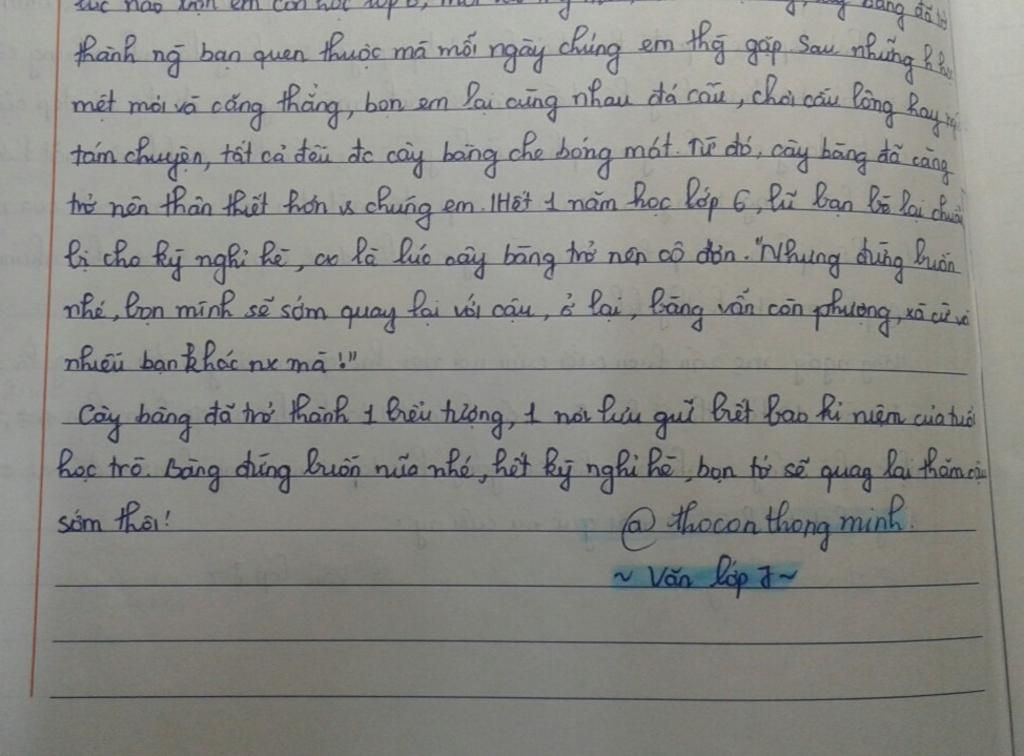 lúc nào trộn em còn học lớp 6, bàng đã trở
thành ng̃ bạn quen thuộc mà mỗi ngày chúng em thg̃ gặp. Sau những
mệt mỏi và căng thẳng, bọn em lại cùng nhau đá cầu, chơi cầu lông hay
tám chuyện, tất cả đều đc cây bàng che bóng mát. Từ đó, cây bàng đã càng
trở nên thân thiết hơn vs chúng em. Hết 1 năm học lớp 6, lũ bạn bè lại chuẩn
bị cho kỳ nghỉ hè, cx là lúc cây bàng trở nên cô đơn. "Nhưng đừng buồn
nhé, bọn mình sẽ sớm quay lại với cậu, ở lại, bàng vẫn còn phượng, xà cừ và
nhiều bạn khác nx mà!"
Cây bàng đã trở thành 1 biểu tượng, 1 nơi lưu giữ biết bao kỉ niệm của tuổi
học trò. Bàng đừng buồn nữa nhé, hết kỳ nghỉ hè, bọn tớ sẽ quay lại thăm cậu
sớm thôi!
@ thocon thong minh.
~ Văn lớp 7 ~